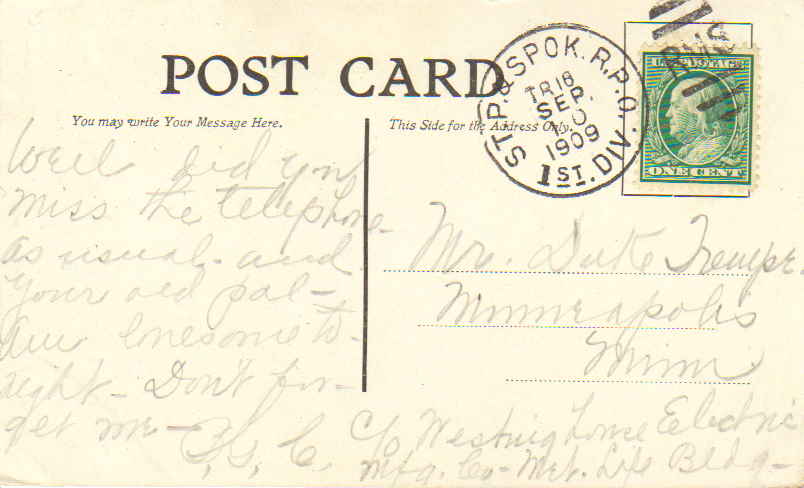 POST CARD
You may write Your Message Here.
This Side for the Address Only.
ST. P. & SPOK. R.P.O.
TR 18
SEP.
10
1909
1ST. DIV.
RMS
U.S. POSTAGE
ONE CENT
Well did you
miss the telephone
as usual - and
your old pal -
am lonesome to-
night - Don't for-
get me -
Mr. Duke
Minneapolis
Minn
c/o Westinghouse Electric
Mfg. Co - Met. Life Bldg -